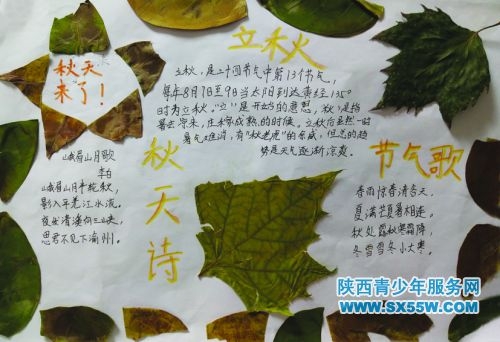 秋天
来了！
立秋
立秋，是二十四节气中第13个节气，
每年8月7日至9日当太阳到达黄经135°
时为立秋。"立"是开始的意思，"秋"是指
暑去凉来，庄稼成熟的时候。立秋后虽然一时
暑气难消，有"秋老虎"的余威，但总的趋
势是天气逐渐凉爽。
峨眉山月歌
李白
峨眉山月半轮秋，
影入平羌江水流。
夜发清溪向三峡，
思君不见下渝州。
秋天诗
节气歌
春雨惊春清谷天，
夏满芒夏暑相连，
秋处露秋寒霜降，
冬雪雪冬小大寒。
陕西青少年服务网
www.sx55w.com